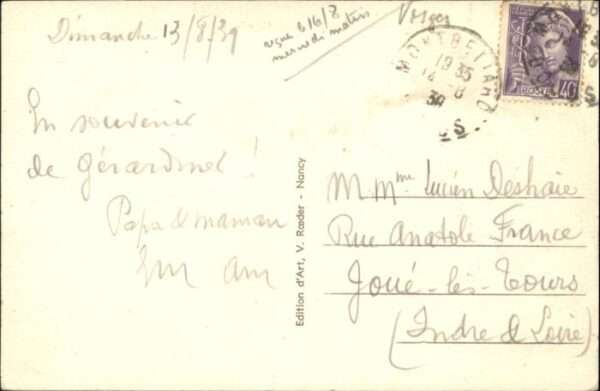 Dimanche 13/8/39
reçue le 16/8
mercredi matin
Vosges
MONTBELIARD
19 35
14 - 8
39
POSTES 40
En souvenir
de Gérardmer !
Papa & maman
Edition d'Art, V. Rœder - Nancy
M Mme Lucien Deshaie
Rue Anatole France
Joué-lès-Tours
(Indre & Loire)